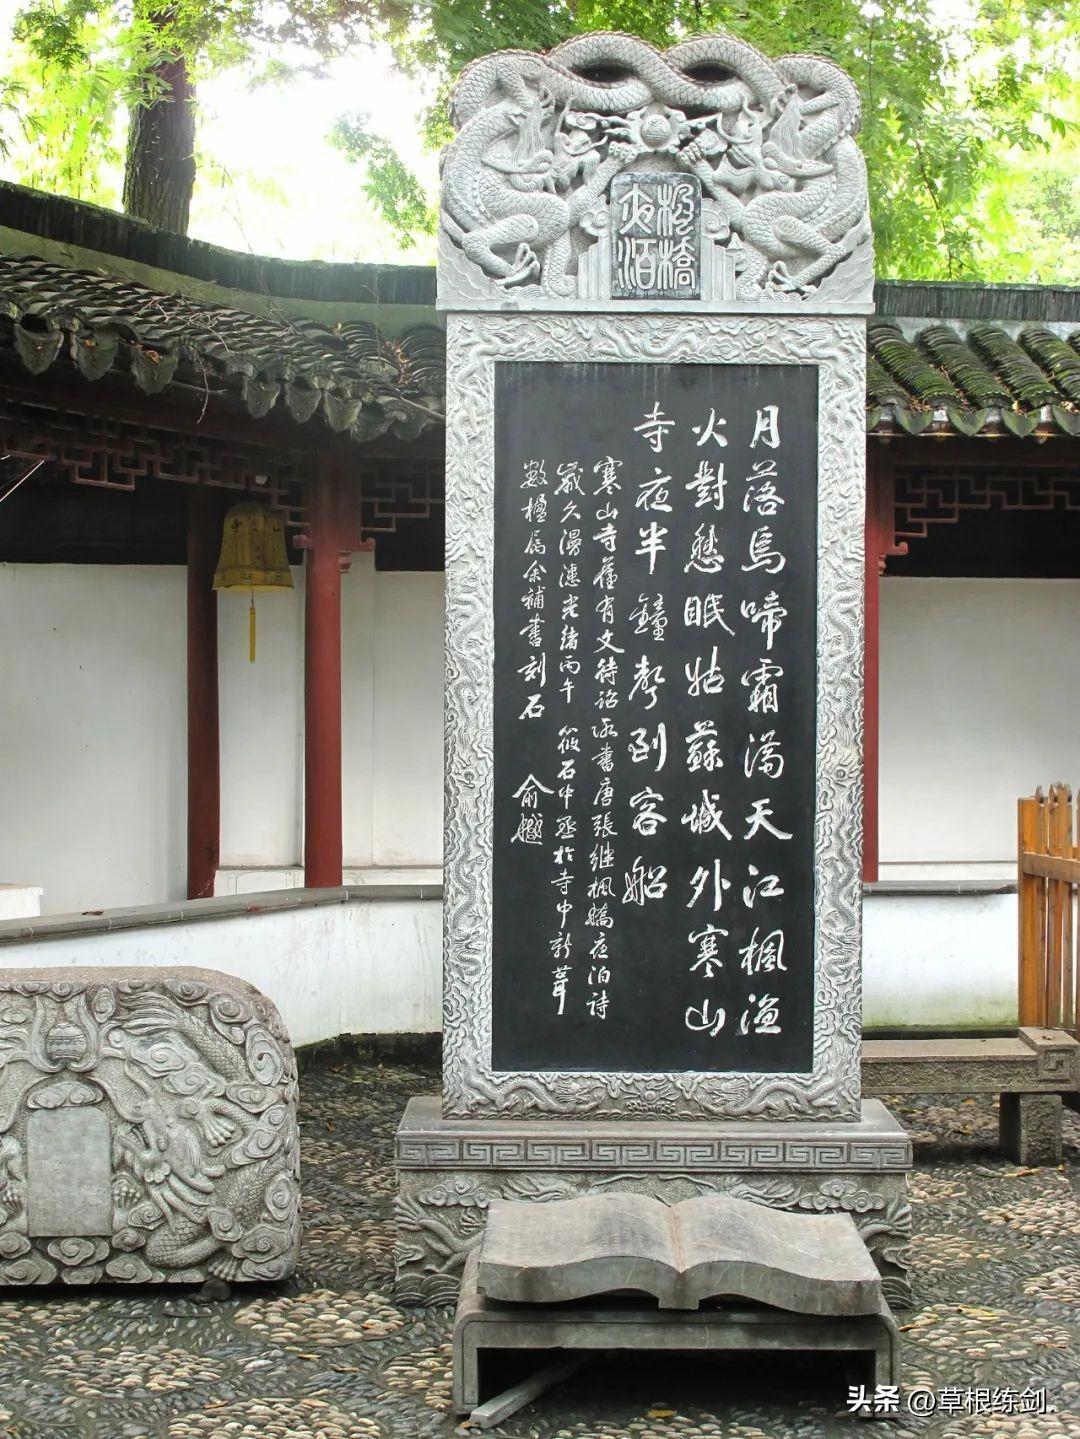 楓橋
夜泊
月落烏啼霜滿天江楓漁
火對愁眠姑蘇城外寒山
寺夜半鐘聲到客船
寒山寺舊有文待詔所書唐張繼楓橋夜泊詩
歲久漫漶光緒丙午 筱石中丞於寺中新葺
數楹屬余補書刻石 俞樾
山
寺
头条 @草根练剑